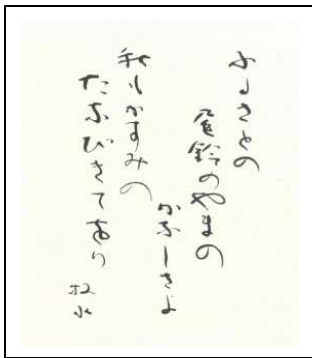 ふるさとの
尾鈴のやまの
かなしさよ
秋もかすみの
たなびきてあり
牧水